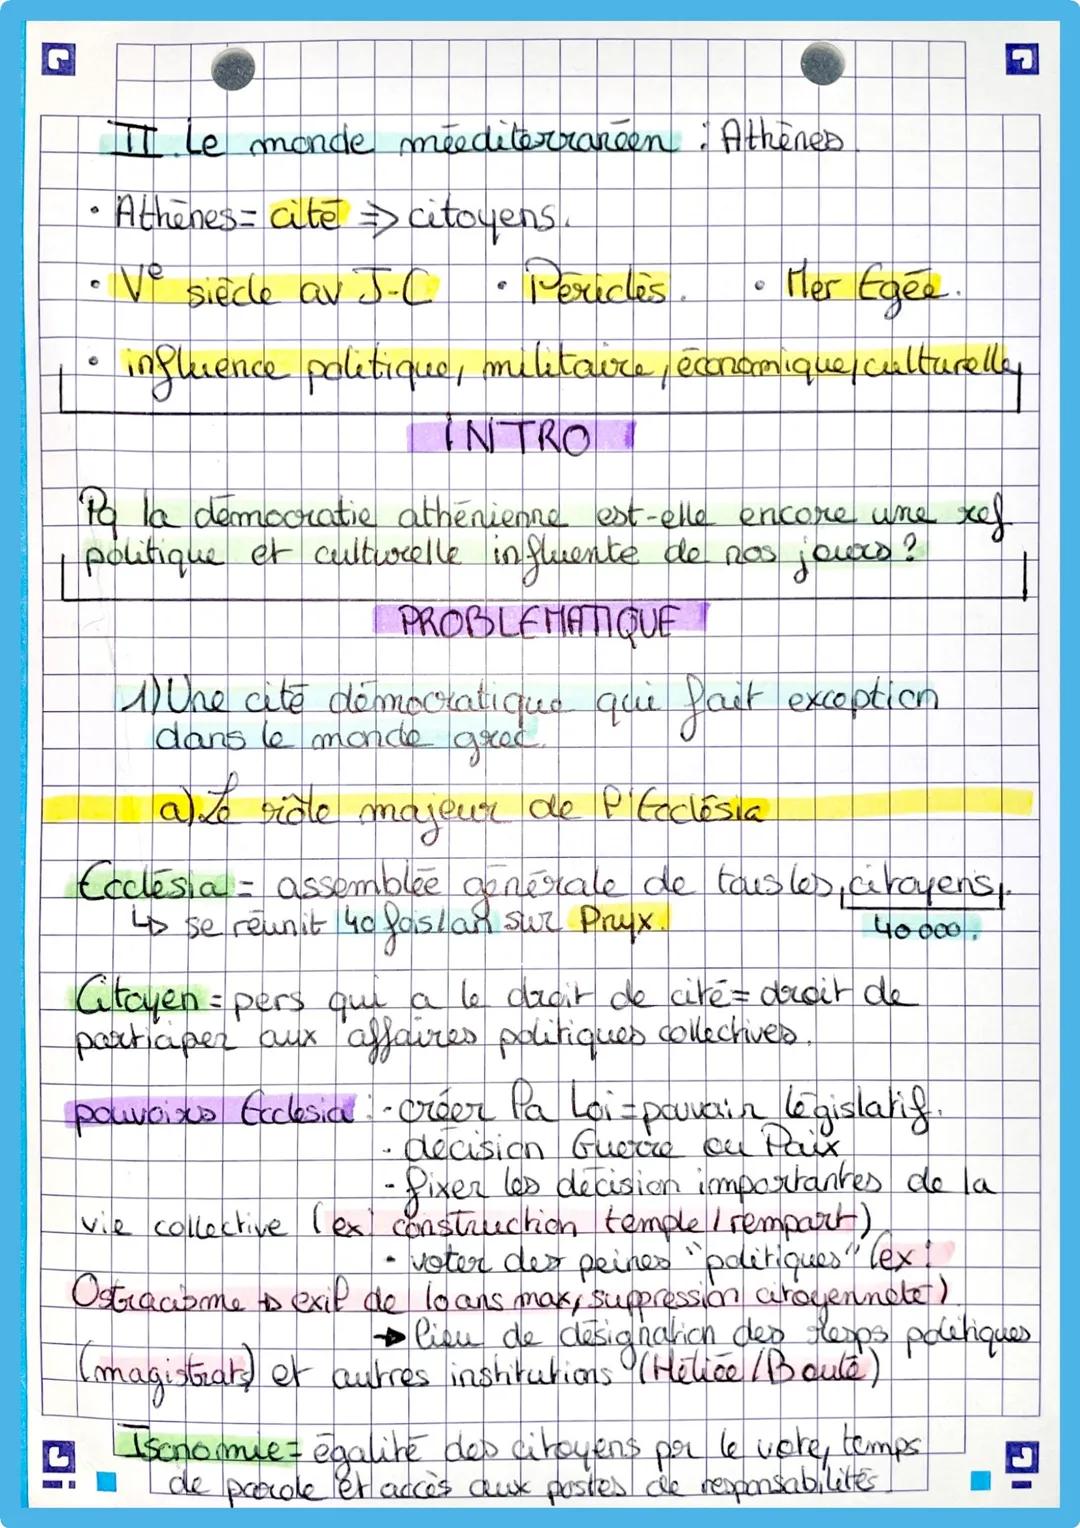 II. Le monde méediterranéen : Athènes
• Athènes = cité => citoyens.
• Ve siècle av J-C • Périclès. • Mer Egée.
• influence politique, militaire, économique, culturelle
INTRO
Pq la démocratie athénienne est-elle encore une ref
politique et culturelle influente de nos jours ?
PROBLEMATIQUE
1) Une cité démocratique qui fait exception
dans le monde grec.
a) Le rôle majeur de l'Ecclésia
Ecclésia = assemblée générale de tous les citoyens.
↳ se réunit 40 fois/an sur Pnyx. 40 000.
Citoyen = pers qui a le droit de cité = droit de
participer aux affaires politiques collectives.
pouvoirs Ecclesia : - créer la Loi = pouvoir législatif.
- décision Guerre ou Paix
- fixer les décision importantes de la
vie collective (ex: construction temple / rempart)
- voter des peines "politiques" (ex:
Ostracisme → exil de 10 ans max, suppression citoyenneté)
→ lieu de désignation des resps politiques
(magistrats) et autres institutions (Héliée / Boulé)
Isonomie = égalité des citoyens par le vote, temps
de parole et accès aux postes de responsabilités